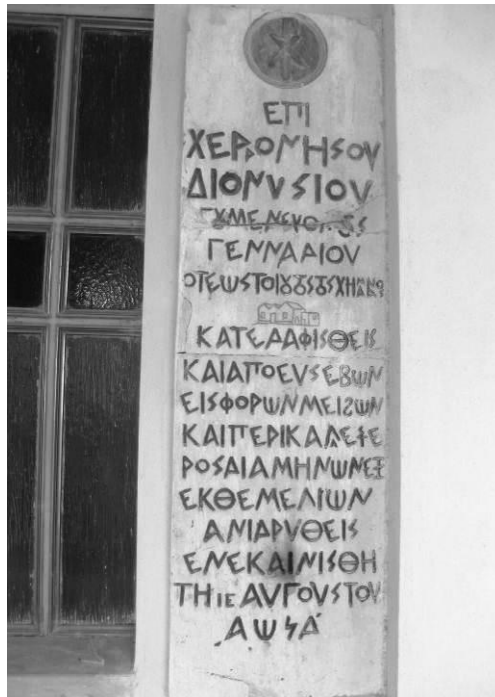 ΕΠΙ
ΧΕΡΡΟΝΗΣΟΥ
ΔΙΟΝΥΣΙΟΥ
ΓΕΝΝΑΔΙΟΥ
ΚΑΤΕΔΑΦΙΣΘΕΙΣ
ΚΑΙ ΑΠΟ ΕΥΣΕΒΩΝ
ΕΙΣΦΟΡΩΝ ΜΕΙΖΩΝ
ΚΑΙ ΠΕΡΙΚΑΛΕΣΤΕ
ΡΟΣ ΔΙΑ ΜΗΝΩΝ ΕΞ
ΕΚ ΘΕΜΕΛΙΩΝ
ΑΝΙΔΡΥΘΕΙΣ
ΕΝΕΚΑΙΝΙΣΘΗ
ΤΗ ΙΕ ΑΥΓΟΥΣΤΟΥ
ΑΩϞΑ